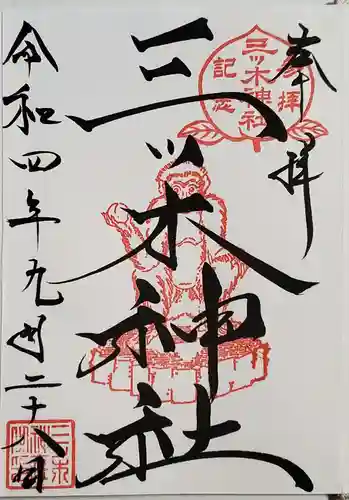 奉拝
三ッ木神社
参拝
記念
三ッ木神社
令和四年九月二十八日